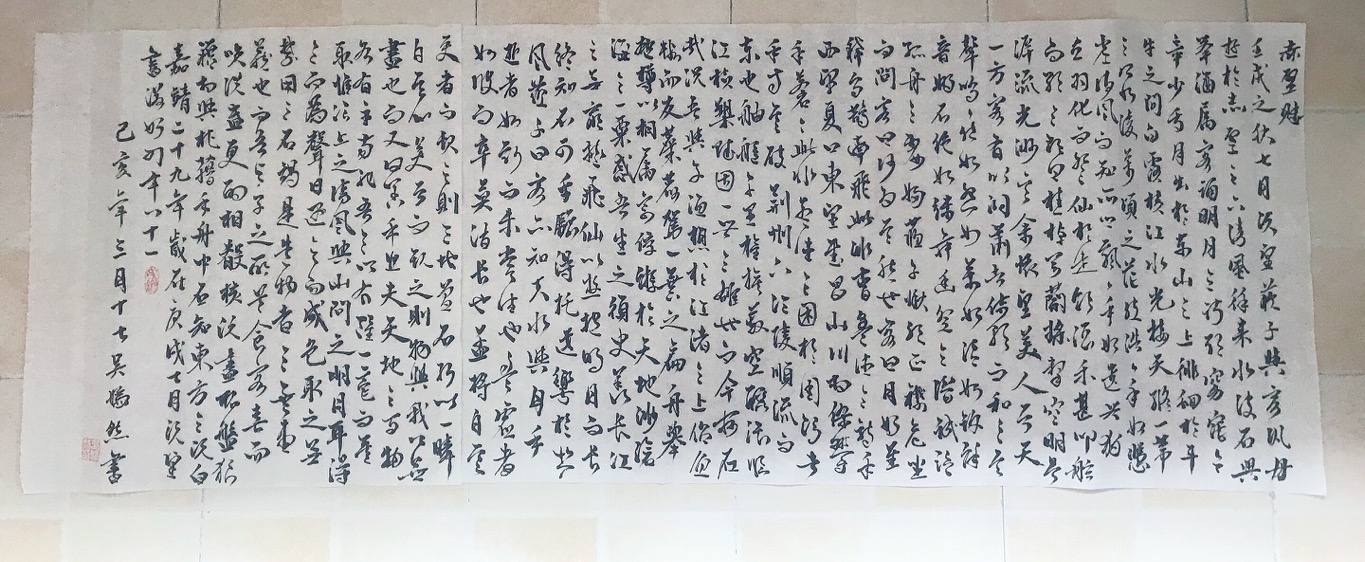 赤壁賦
壬戌之秋七月既望蘇子與客汎舟
遊於赤壁之下清風徐來水波不興
舉酒屬客誦明月之詩歌窈窕之
章少焉月出於東山之上徘徊於斗
牛之間白露橫江水光接天縱一葦
之所如凌萬頃之茫然浩浩乎如憑
虛御風而不知所止飄飄乎如遺世獨
立羽化而登仙於是飲酒樂甚叩舷
而歌之歌曰桂棹兮蘭槳擊空明兮
泝流光渺渺兮余懷望美人兮天
一方客有吹洞簫者倚歌而和之其
聲嗚嗚然如怨如慕如泣如訴餘
音嫋嫋不絕如縷舞幽壑之潛蛟泣
孤舟之嫠婦蘇子愀然正襟危坐
而問客曰何為其然也客曰月明星
稀烏鵲南飛此非曹孟德之詩乎
西望夏口東望武昌山川相繆鬱
乎蒼蒼此非孟德之困於周郎者
乎方其破荊州下江陵順流而
東也舳艫千里旌旗蔽空釃酒臨
江橫槊賦固一世之雄也而今安在
哉況吾與子漁樵於江渚之上侶魚
蝦而友麋鹿駕一葉之扁舟舉
匏樽以相屬寄蜉蝣於天地渺滄
海之一粟哀吾生之須臾羨長江
之無窮挾飛仙以遨遊抱明月而長
終知不可乎驟得托遺響於悲
風蘇子曰客亦知夫水與月乎
逝者如斯而未嘗往也盈虛者
如彼而卒莫消長也蓋將自其
變者而觀之則天地曾不能以一瞬
自其不變者而觀之則物與我皆無
盡也而又何羨乎且夫天地之間物
各有主苟非吾之所有雖一毫而莫
取惟江上之清風與山間之明月耳得
之而為聲目遇之而成色取之無
禁用之不竭是造物者之無盡
藏也而吾與子之所共食客喜而
笑洗盞更酌肴核既盡杯盤狼
藉相與枕藉乎舟中不知東方之既白
嘉靖二十九年歲在庚戌七月既望
書 時年八十一
己亥年三月十七吳嫣然書